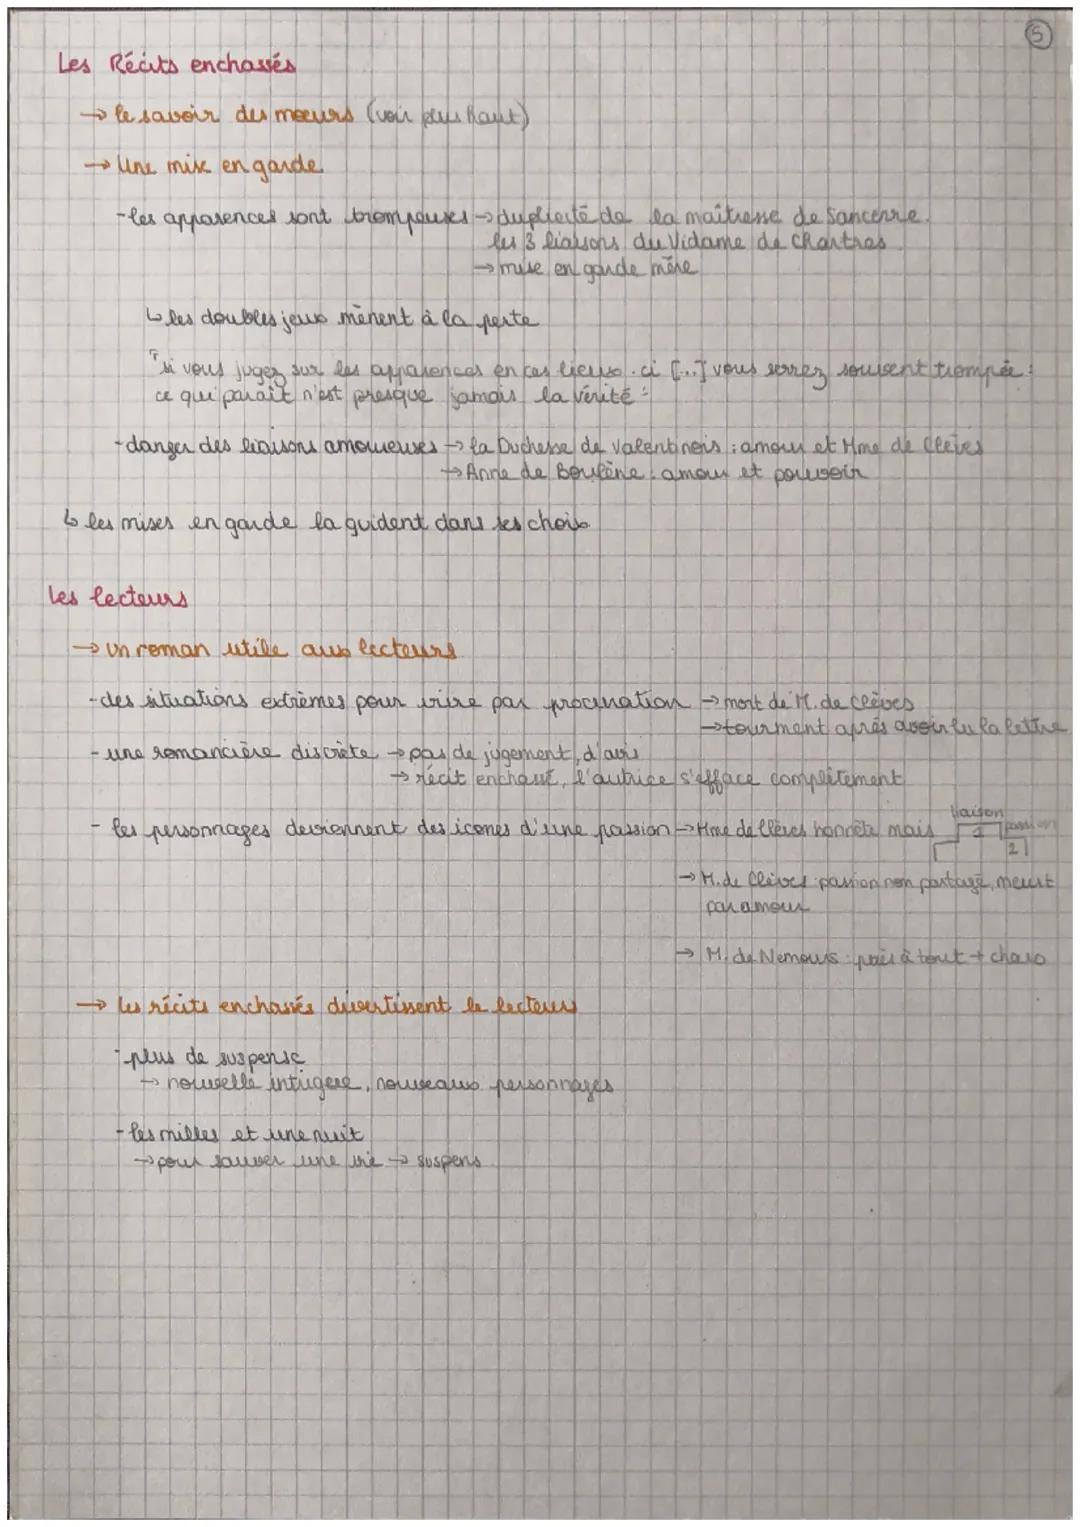 5
Les Récits enchassés
→ le savoir des mœurs (voir plus haut)
→ Une mise en garde
- les apparences sont trompeuses → duplicité de la maîtresse de Sancerre.
les 3 liaisons du Vidame de Chartres
→ mise en garde mère
↳ les doubles jeux mènent à la perte
"si vous jugez sur les apparences en ces lieux-ci [...] vous serrez souvent trompée :
ce qui paraît n'est presque jamais la vérité"
- danger des liaisons amoureuses → la Duchesse de Valentinois : amour et Mme de Clèves
→ Anne de Boulène : amour et pouvoir
↳ les mises en garde la guident dans ses choix
Les lecteurs
→ un roman utile aux lecteurs
- des situations extrêmes pour vivre par procuration → mort de M. de Clèves
→ tourment après avoir lu la lettre
- une romancière discrète → pas de jugement, d'avis
→ récit enchassé, l'autrice s'efface complètement
- les personnages deviennent des icones d'une passion → Mme de Clèves honnête mais
liaison
1 passion
2
→ M. de Clèves : passion non partagé, meurt
par amour
→ M. de Nemours : prêt à tout + charo
→ les récits enchassés divertissent le lecteurs
- plus de suspense
→ nouvelle intrigue, nouveaux personnages
- les milles et une nuit
→ pour sauver une vie → suspens